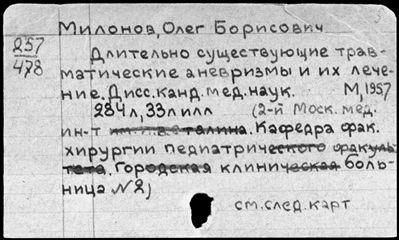 Милонов, Олег Борисович
257
478
Длительно существующие трав-
матические аневризмы и их лече-
ние. Дисс. канд. мед. наук. М, 1957
284 л, 33 л илл (2-й Моск. мед.
ин-т им. И.В. Сталина. Кафедра фак.
хирургии педиатрического факуль-
тета. Городская клиническая боль-
ница №2)
см. след. карт